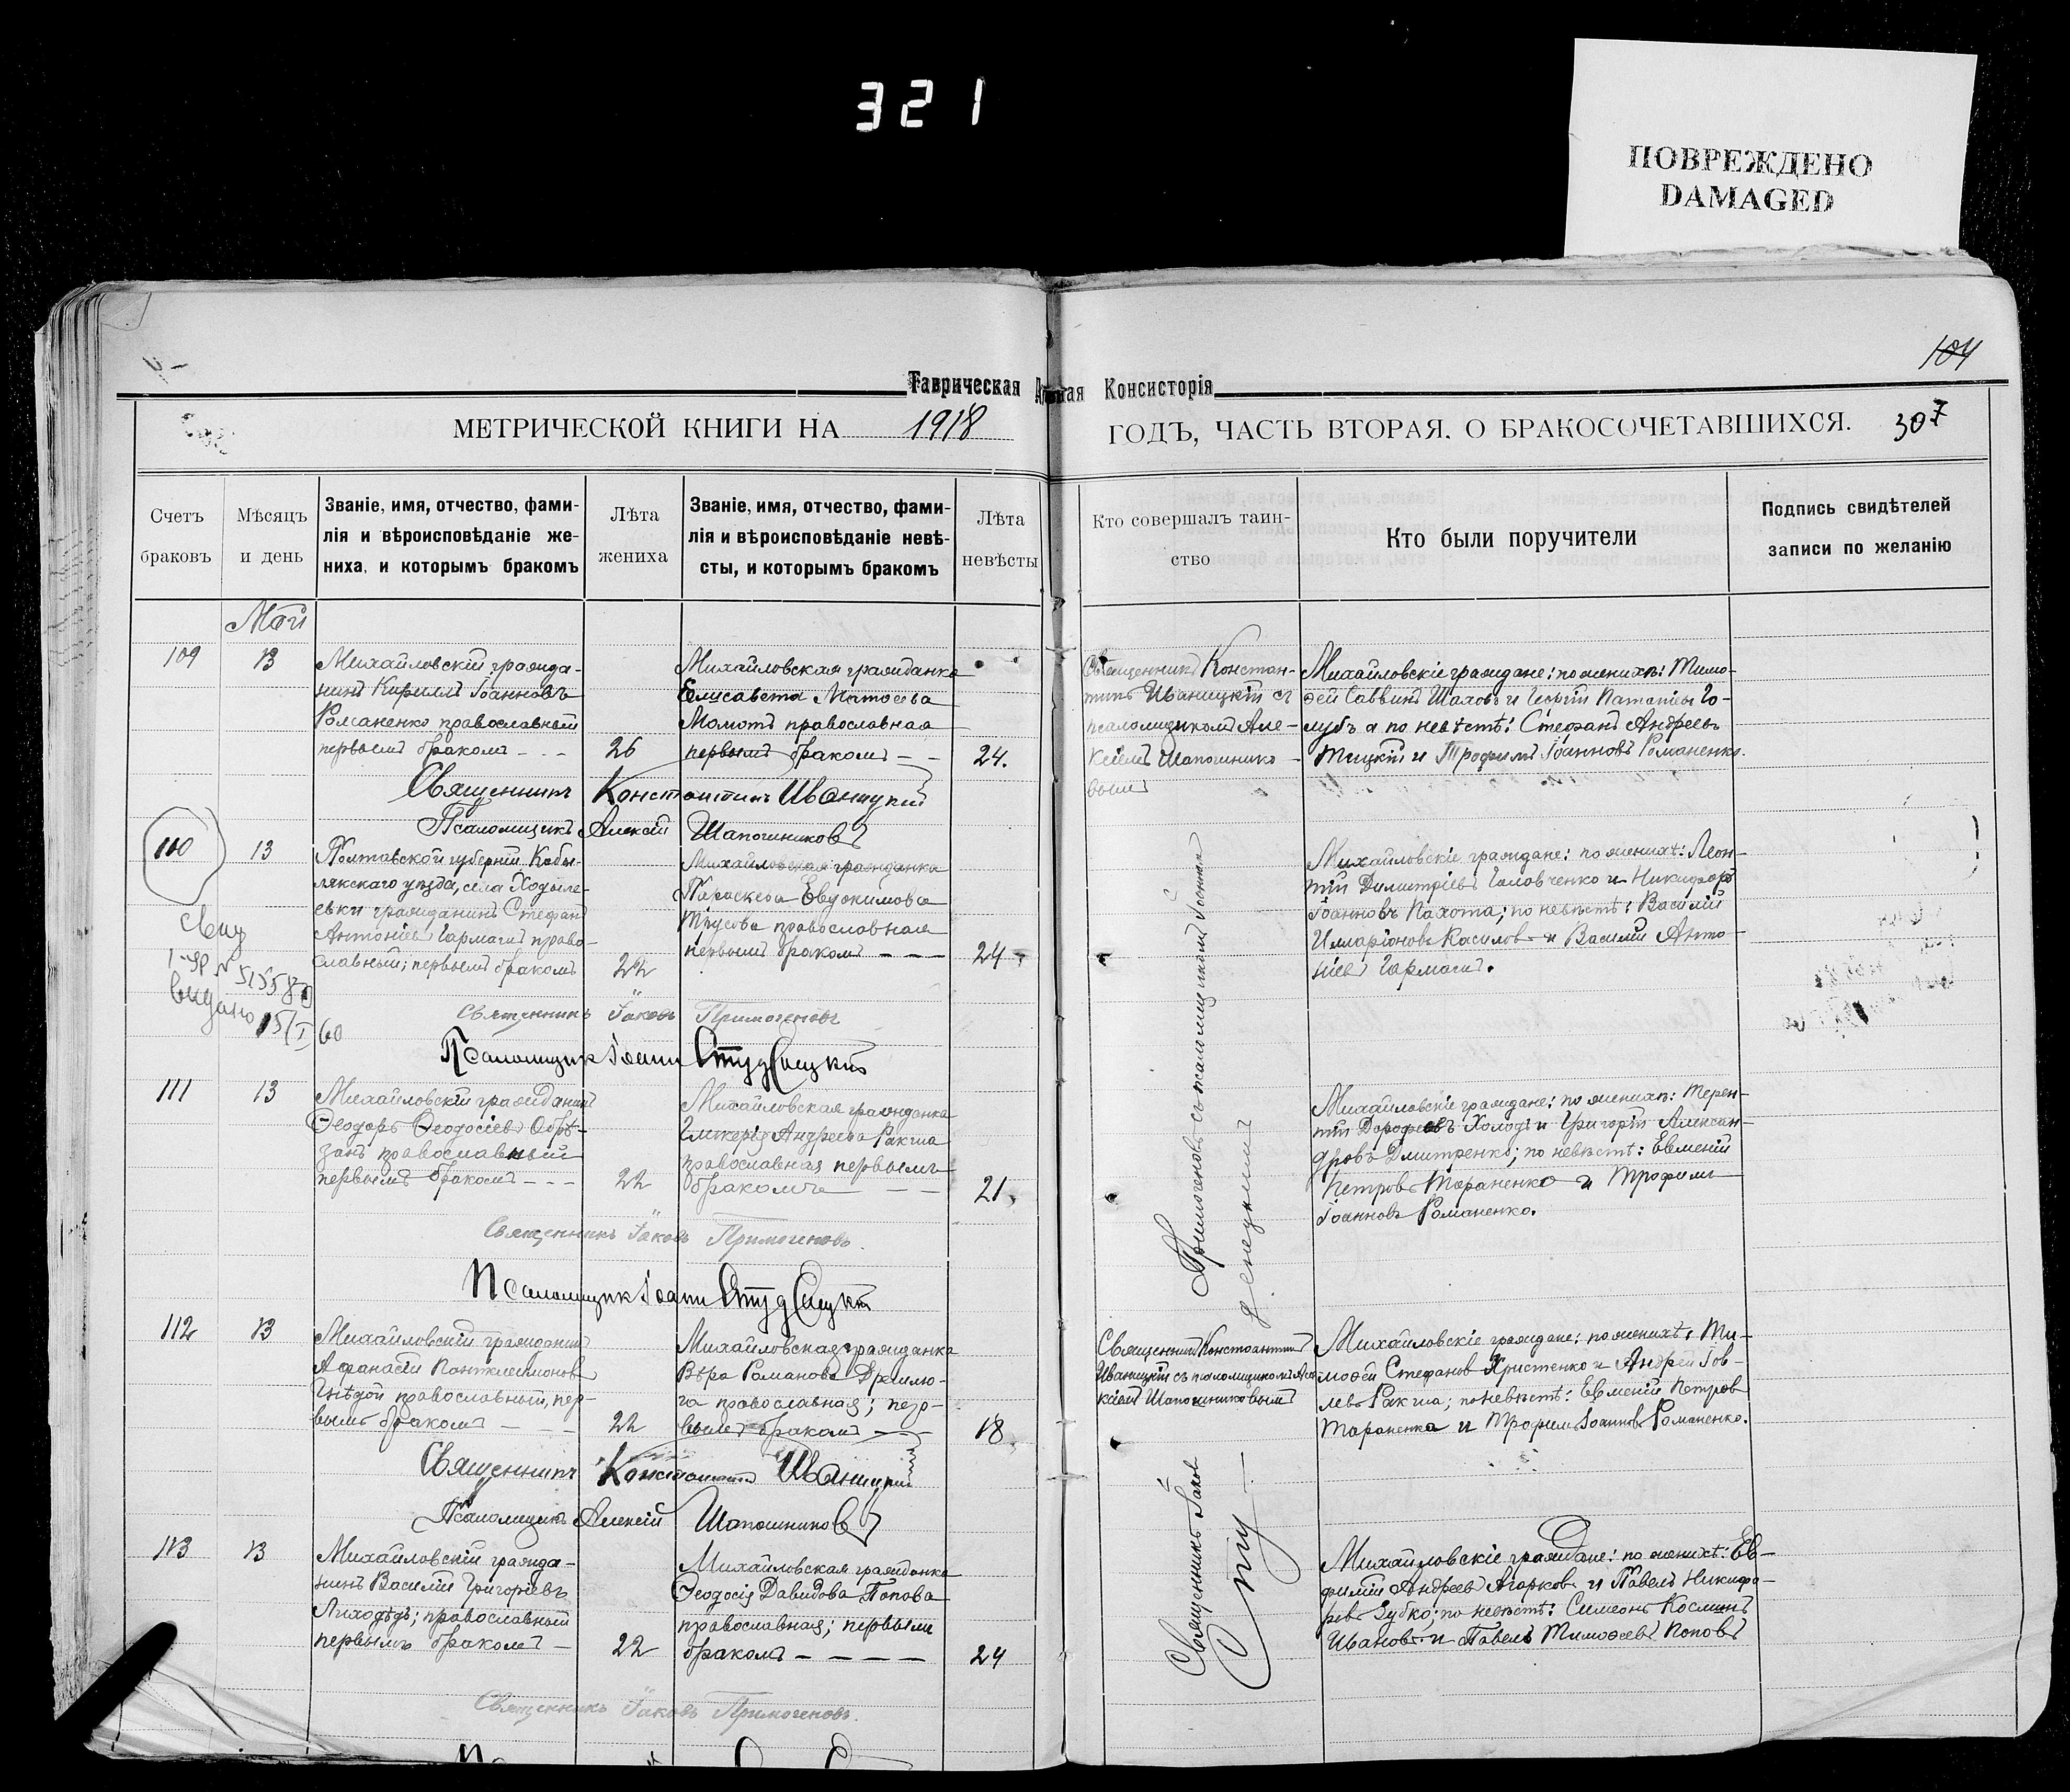 321
ПОВРЕЖДЕНО
DAMAGED
104
Таврическая Консисторія
МЕТРИЧЕСКОЙ КНИГИ НА 1918 ГОДЪ, ЧАСТЬ ВТОРАЯ. О БРАКОСОЧЕТАВШИХСЯ. 307
Счетъ
браковъ
Мѣсяцъ
и день
Званіе, имя, отчество, фами-
лія и вѣроисповѣданіе же-
ниха, и которымъ бракомъ
Лѣта
жениха
Званіе, имя, отчество, фами-
лія и вѣроисповѣданіе невѣ-
сты, и которымъ бракомъ
Лѣта
невѣсты
Кто совершалъ таин-
ство
Кто были поручители
Подпись свидѣтелей
записи по желанію
Май
109
13
Михайловскій гражда-
нинъ Кириллъ Іоанновъ
Романенко православный
первымъ бракомъ - - -
26
Михайловская гражданка
Елисавета Матѳеева
Момотъ православная
первымъ бракомъ - -
24.
Священникъ Констан-
тинъ Иваницкій съ
псаломщикомъ Але-
ксіемъ Шапошнико-
вымъ
Михайловскіе граждане: по женихѣ: Тимо-
ѳей Саввинъ Шаховъ и Георгій Потапіевъ Го-
лубъ а по невѣстѣ: Стефанъ Андреевъ
Тицкій и Трофимъ Іоанновъ Романенко.
Священникъ Константинъ Иваницкій
Псаломщикъ Алексій Шапошниковъ
110
13
Полтавской губерніи Кобы-
лякскаго уѣзда, села
гражданинъ Стефанъ
Антоніевъ Гармашъ право-
славный; первымъ бракомъ
22
Михайловская гражданка
Параскева Евдокимова
Трусова православная
первымъ бракомъ - - -
24
Михайловскіе граждане: по женихѣ: Леон-
тій Димитріевъ Головченко и Никифоръ
Іоанновъ Пахота; по невѣстѣ: Василій
Илларіоновъ Касиловъ и Василій Анто-
ніевъ Гармашъ.
выдано
15/I 60
Священникъ Іаковъ Примогеновъ
Псаломщикъ Іоаннъ Студенецкій
111
13
Михайловскій гражданинъ
Ѳеодоръ Ѳеодосіевъ Обрѣ-
занъ православный
первымъ бракомъ - - -
22
Михайловская гражданка
Гликерія Андреева Ракша
православная первымъ
бракомъ - -
21
Михайловскіе граждане: по женихѣ: Терен-
тій Дорофеевъ Холодъ и Григорій Алексан-
дровъ Дмитренко; по невѣстѣ: Евменій
Петровъ Тараненко и Трофимъ
Іоанновъ Романенко.
Священникъ Іаковъ Примогеновъ.
Псаломщикъ Іоаннъ Студенецкій
112
13
Михайловскій гражданинъ
Аѳанасій Пантелеимоновъ
Гнѣдой православный, пер-
вымъ бракомъ - -
22
Михайловская гражданка
Вѣра Романова Дремлю-
га православная; пер-
вымъ бракомъ - -
18
Священникъ Константинъ
Иваницкій съ псаломщикомъ Але-
ксіемъ Шапошниковымъ
Михайловскіе граждане: по женихѣ: Ти-
моѳей Стефановъ Христенко и Андрей Іов-
левъ Ракша; по невѣстѣ: Евменій Петровъ
Тараненко и Трофимъ Іоанновъ Романенко.
Священникъ Константинъ Иваницкій
Псаломщикъ Алексій Шапошниковъ
113
13
Михайловскій гражда-
нинъ Василій Григорьевъ
Лиходѣдъ; православный
первымъ бракомъ -
22
Михайловская гражданка
Ѳеодосія Давидова Попова
православная; первымъ
бракомъ - - - -
24
Священникъ Іаковъ
Примогеновъ съ псаломщикомъ Іоанномъ
Сту-
денецкимъ
Михайловскіе граждане: по женихѣ: Ев-
фимій Андреевъ Агарковъ и Павелъ Никифо-
ровъ Зубко; по невѣстѣ: Симеонъ Косминъ
Ивановъ и Павелъ Тимоѳеевъ Поповъ
Священникъ Іаковъ Примогеновъ.